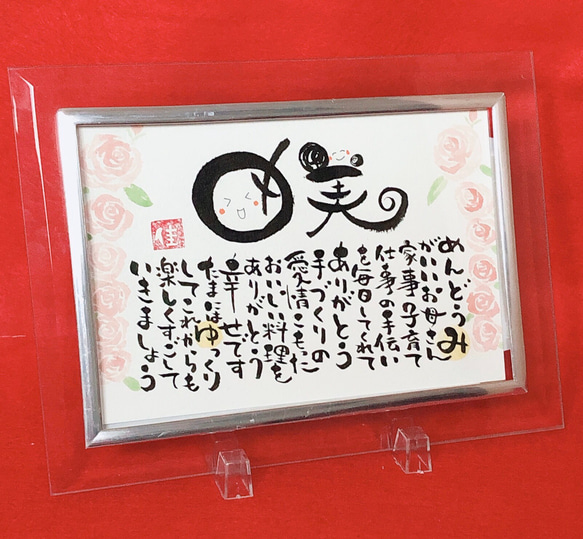 美ゆ
めんどうみ
がいいお母さん
家事子育て
仕事の手伝い
を毎日してくれて
ありがとう
手づくりの
愛情こもった
おいしい料理を
ありがとう
幸せです
たまにはゆっくり
してこれからも
楽しくすごして
いきましょう
佳